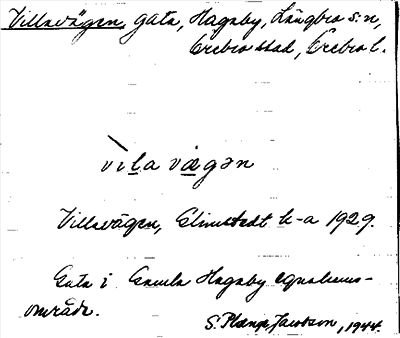 Villavägen, gata, Hagaby, Längbro s:n,
Örebro stad, Örebro l.
vila vägən
Villavägen, Elmstedt k-a 1929.
Gata i Gamla Hagaby egnahems-
område.
S. Jacobson, 1944.